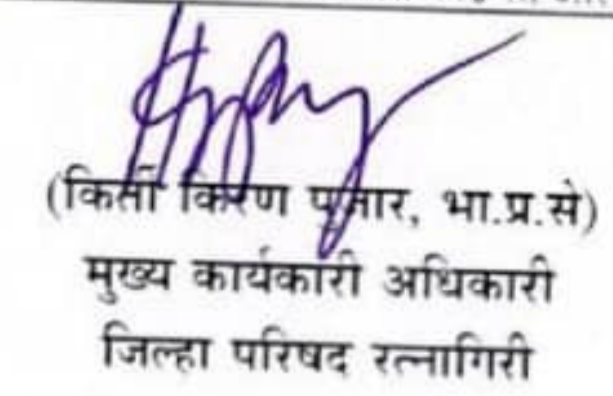 (किर्ती किरण पूजार, भा.प्र.से)
मुख्य कार्यकारी अधिकारी
जिल्हा परिषद रत्नागिरी